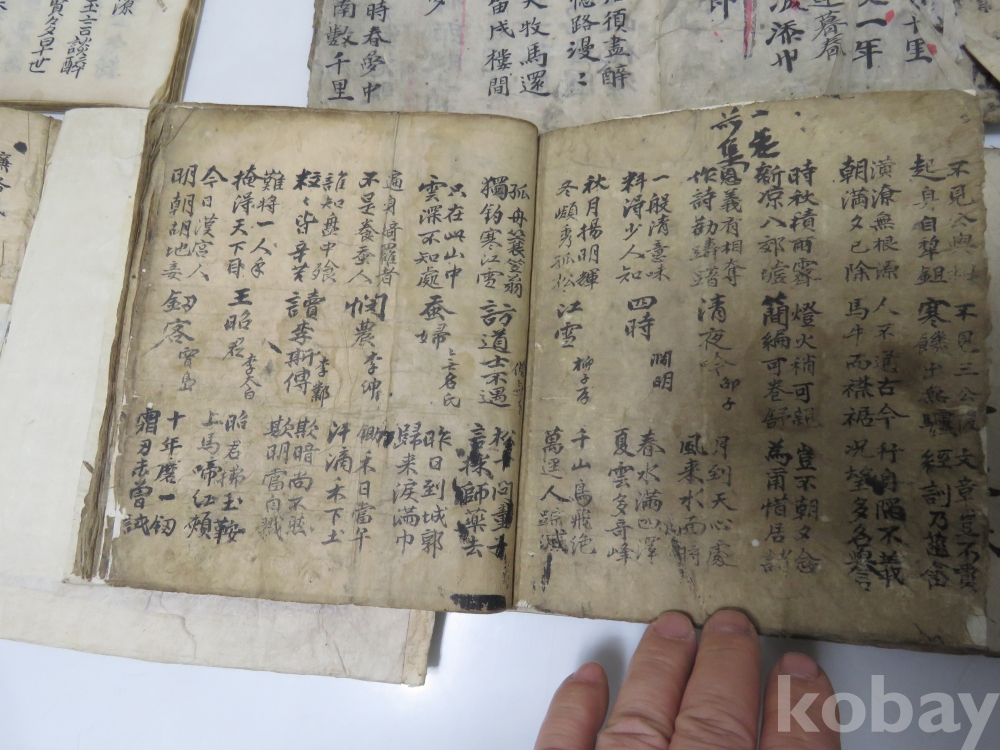 不見公與相
起身自犁鉏
不見三公後
寒饑出無驢
文章豈不貴
經訓乃菑畬
潢潦無根源
朝滿夕已除
人不通古今
馬牛而襟裾
行身陷不義
況望多名譽
時秋積雨霽
新凉入郊墟
燈火稍可親
簡編可卷舒
豈不朝夕念
為爾惜居諸
恩義有相奪
作詩勸躊躇
清夜吟 邵子
月到天心處
風來水面時
一般清意味
料得少人知
四時 淵明
春水滿四澤
夏雲多奇峰
秋月揚明輝
冬嶺秀孤松
江雪 柳子厚
千山鳥飛絶
萬逕人蹤滅
孤舟簑笠翁
獨釣寒江雪
訪道士不遇
松下問童子
言採師藥去
只在此山中
雲深不知處
蚕婦 無名氏
昨日到城郭
歸來淚滿巾
遍身綺羅者
不是養蚕人
憫農 李紳
鋤禾日當午
汗滴禾下土
誰知盤中飧
粒〻皆辛苦
讀李斯傳 李鄴
欺暗尚不然
欺明當自戮
難將一人手
掩得天下目
王昭君 李太白
昭君拂玉鞍
上馬啼紅頰
今日漢宮人
明朝胡地妾
劒客 賈島
十年磨一劒
霜刃未曾試
十里
一年
須盡醉
路漫〻
牧馬還
戍樓間
時春夢中
南數千里
kobay